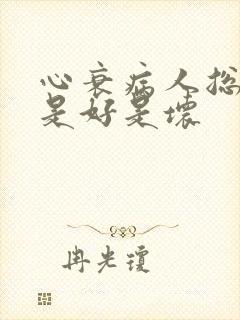 心衰病人总
是好是坏
冉光琼